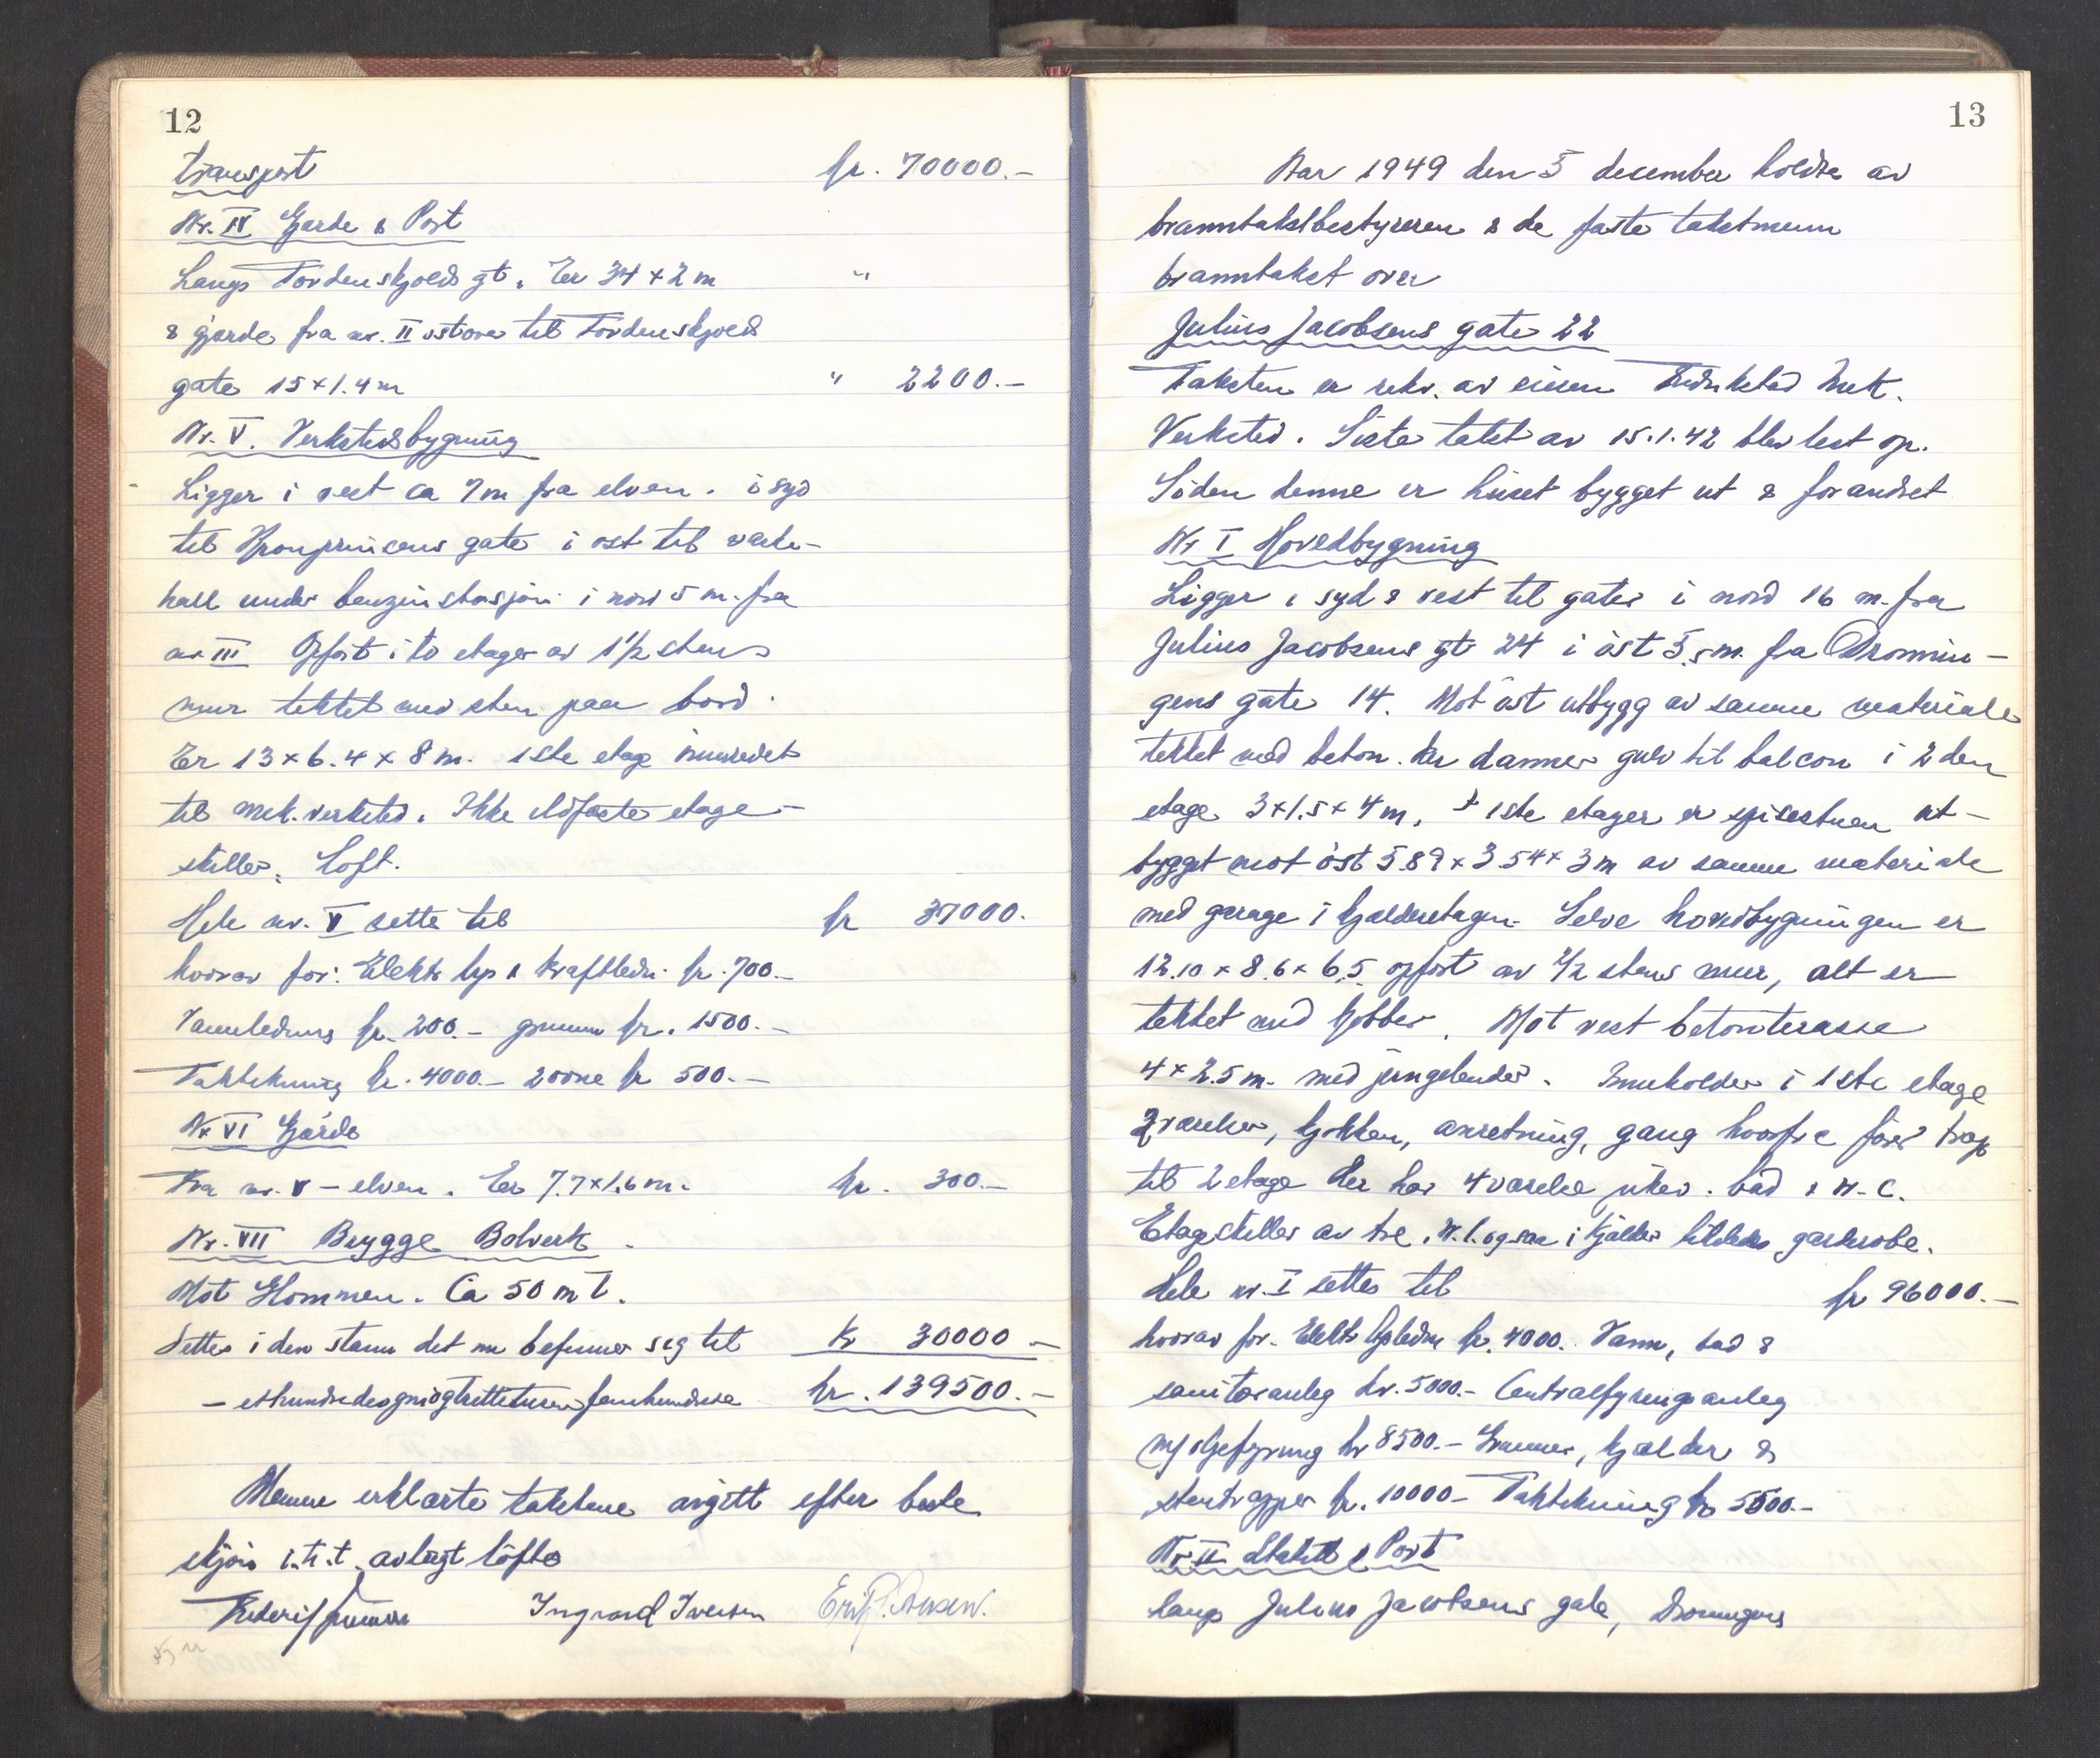 12
transport kr. 70000.-
Nr. IV Gjerde & Port
Langs Tordenskjolds gt. Er 34 x 2 m "
& gjerde fra nr. II østover til Tordenskjolds
gate 15 x 1.4 m " 2200.-
Nr. V. Verkstedsbygning
Ligger i vest ca 7 m fra elven. i syd
til Kronprincens gate i øst til vaske-
hall under benzinstasjon i nord 5 m. fra
nr III Opført i to etager av 1 1/2 stens
mur tekket med sten paa bord.
Er 13 x 6.4 x 8 m. 1ste etage innredet
til mek. verksted. Ikke ildfaste etage-
skiller. Loft.
Hele nr. V settes til kr 37000.
hvorav for: Elektr lys & kraftledn. kr. 700.-
Vannledning kr. 200.- grunn kr. 1500.-
Taktekning kr. 4000.- kr 500.-
Nr VI Gjerde
Fra nr. V - elven. Er 7.7 x 1.6 m. kr. 300.-
Nr. VII Brygge Bolverk
Mot Glommen. Ca 50 m l.
Settes i den stann det nu befinner seg til kr 30000.-
- etthundredeogniogtrettitusenfemhundrede kr. 139500.-
Mennene erklærte takstene avgitt efter beste
skjøn i.h.t. avlagt løfte
Ingvard Iversen
13
Aar 1949 den 5 december holdtes av
branntakstbestyreren & de faste takstmenn
branntakst over
Julius Jacobsens gate 22
Taksten er rekv. av eieren Fredrikstad Mek.
Verksted. Siste takst av 15.1.42 blev lest op.
Siden denne er huset bygget ut & forandret
Nr I Hovedbygning
Ligger i syd & vest til gater i nord 16 m. fra
Julius Jacobsens gt 24 i øst 5.5 m. fra Dronnin-
gens gate 14. Mot øst utbygg av samme materiale
tekket med beton. der danner gulv til balcon i 2den
etage 3 x 1.5 x 4 m. I 1ste etager er spisestuen ut-
bygget mot øst 5.89 x 3.54 x 3 m av samme materiale
med garage i kjælderetagen. Selve hovedbygningen er
12.10 x 8.6 x 6.5 opført av 1/2 stens mur, alt er
tekket med kobber. Mot vest betonterasse
4 x 2.5 m. med jerngelender. Inneholder i 1ste etage
2 værelser, kjøkken, anretning, gang hvorfra fører trap
til 2 etage der har 4 værelse bad & W.C.
Etageskiller av tre. W.C. ogsaa i kjælder garderobe.
Hele nr. I settes til kr 96000.-
hvorav for. Elektr lysledn. kr. 4000. Vann, bad &
sanitæranleg kr. 5000.- Centralfyringsanleg
m/oljefyrung kr 8500.- Grunner, kjælder &
stentrapper kr. 10000.- Taktekning kr 5500.-
Nr II Stakitt & Port
langs Julius Jacobsens gate, Dronningens